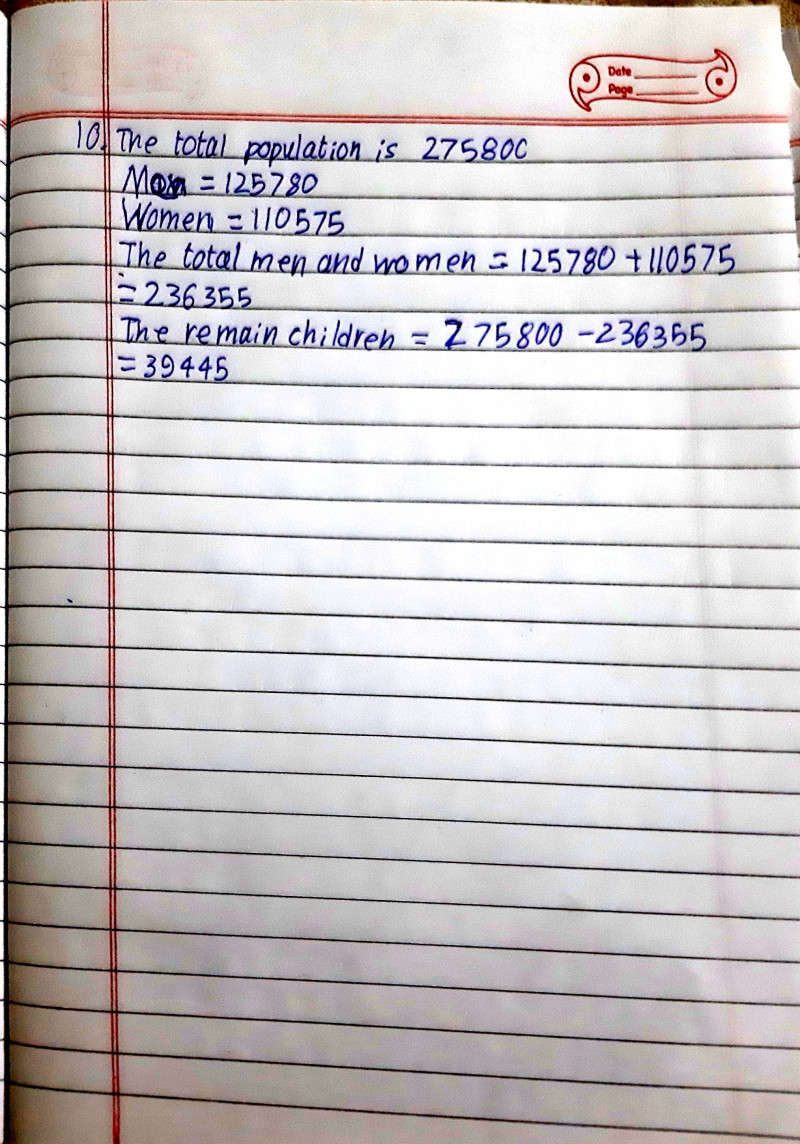 Date
Page
10. The total population is 275800
Men = 125780
Women = 110575
The total men and women = 125780 + 110575
= 236355
The remain children = 275800 - 236355
= 39445